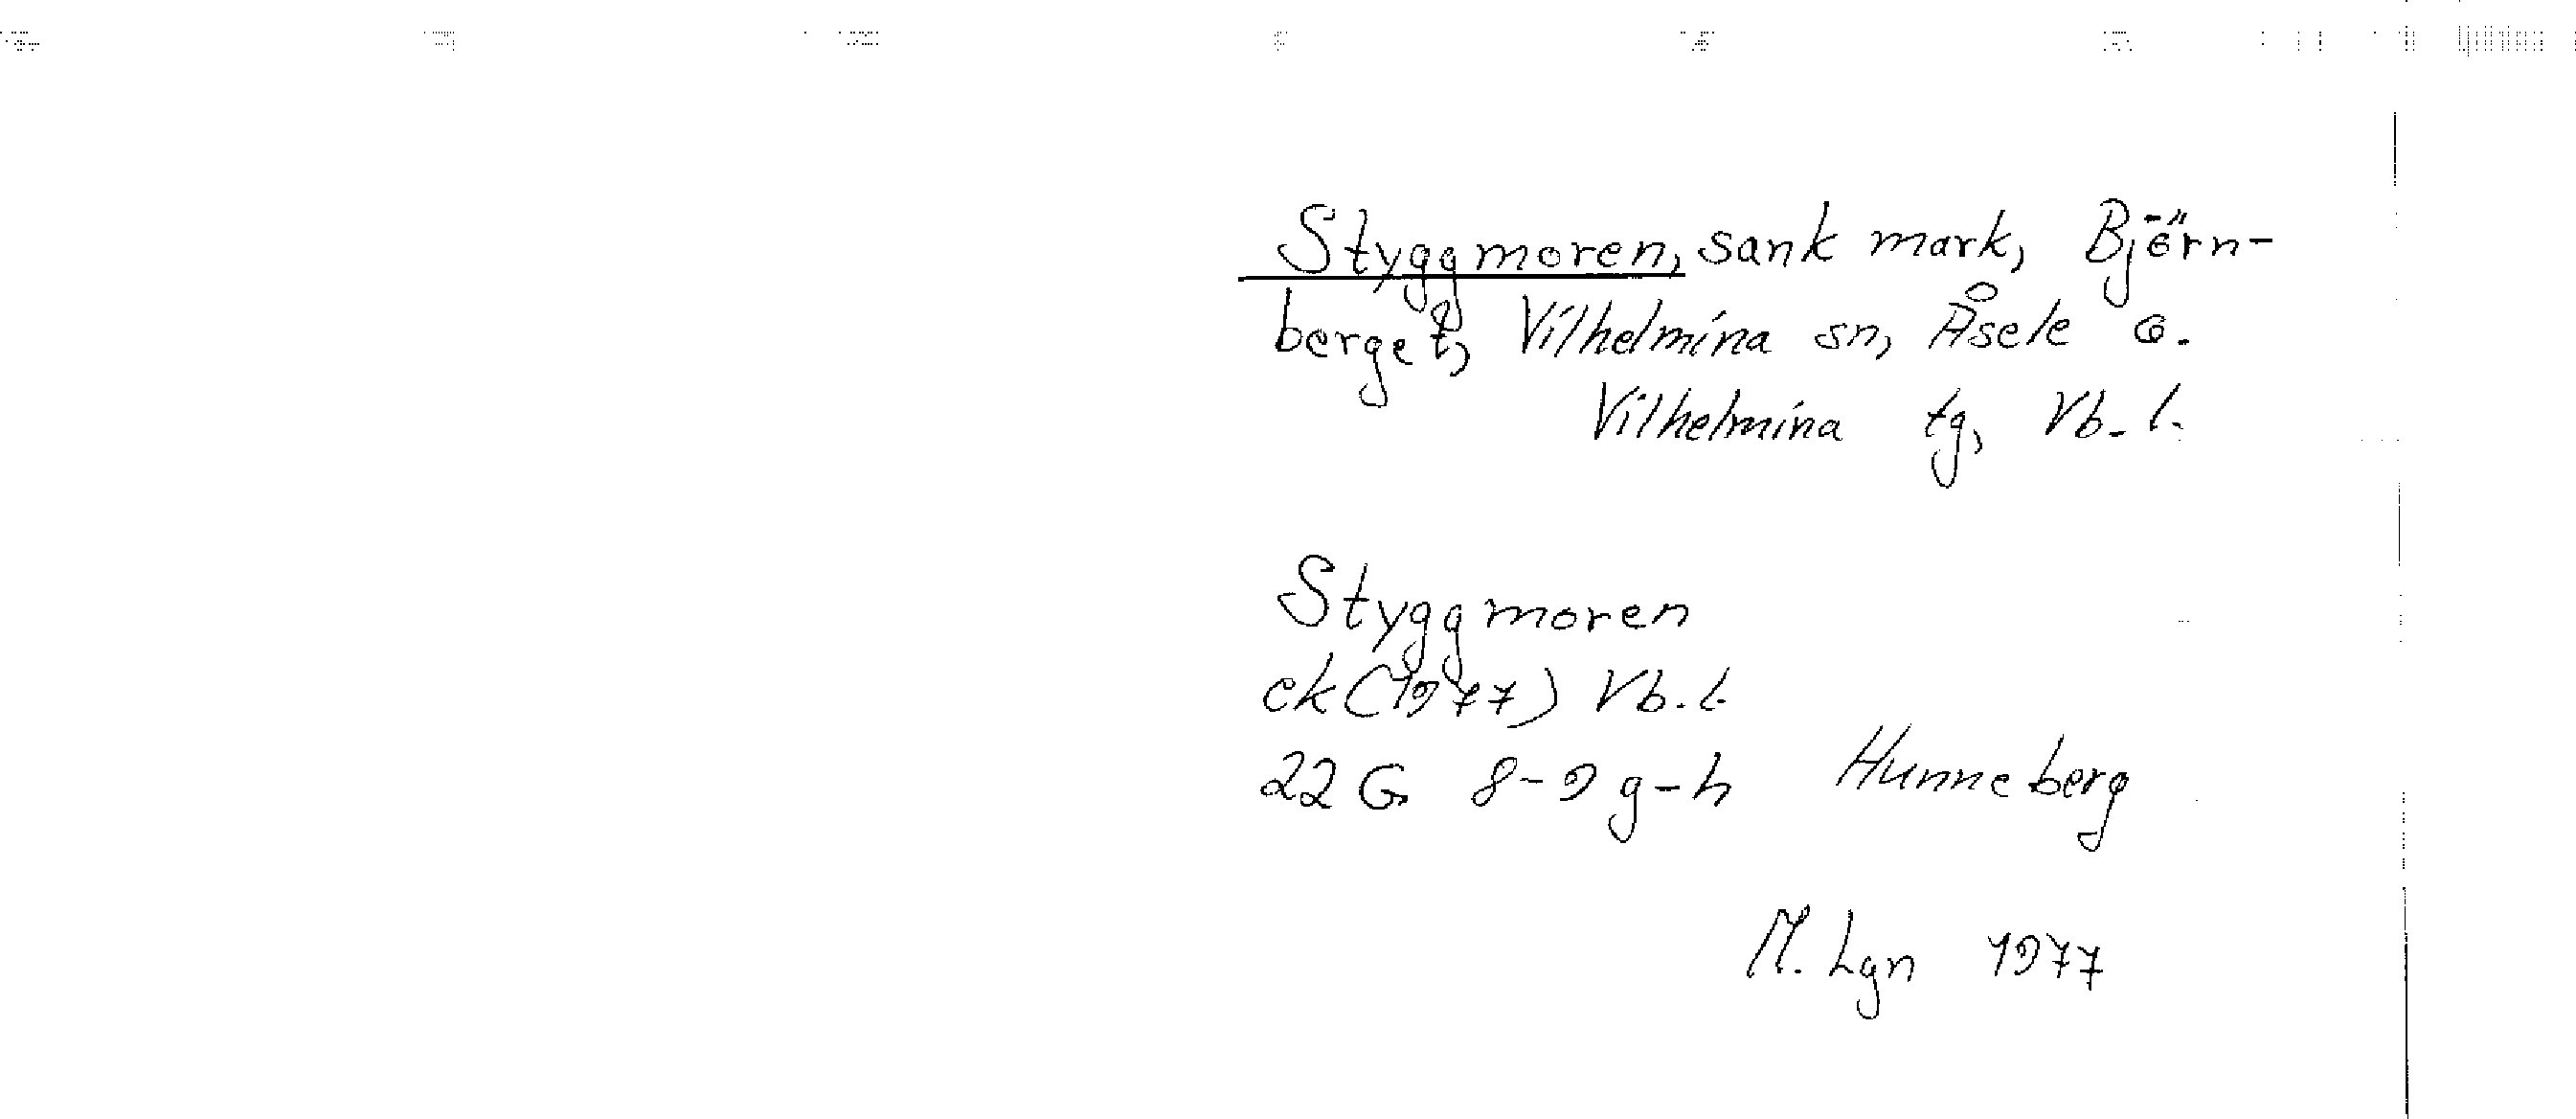 Styggmoren, sank mark, Björn-
berget, Vilhelmina sn, Åsele
Vilhelmina tg, Vb. l.
Styggmoren
ek (1977) Vb. l.
22 G 8-9 g-h Hunneberg
M. Lgn 1977